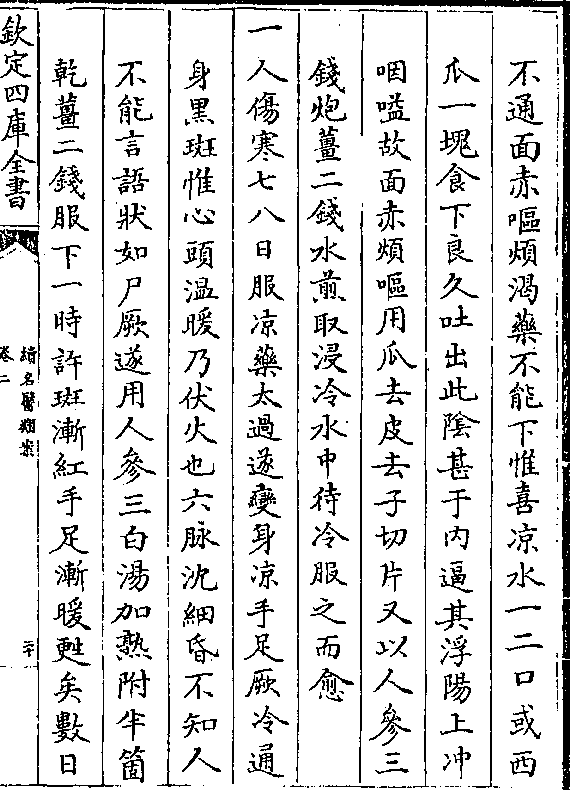 不通面赤嘔煩渴藥不能下惟喜凉水一二口或西
瓜一塊食下良久吐出此陰甚于内逼其浮陽上冲
咽嗌故面赤煩嘔用瓜去皮去子切片又以人參三
錢炮薑二錢水煎取浸冷水中待冷服之而愈
一人傷寒七八日服凉藥太過遂變身凉手足厥冷通
身黑斑惟心頭温暖乃伏火也六脉沈細昏不知人
不能言語狀如尸厥遂用人參三白湯加熟附半箇
乾薑二錢服下一時許斑漸紅手足漸暖甦矣數日
欽定四庫全書
續名醫類案
卷二